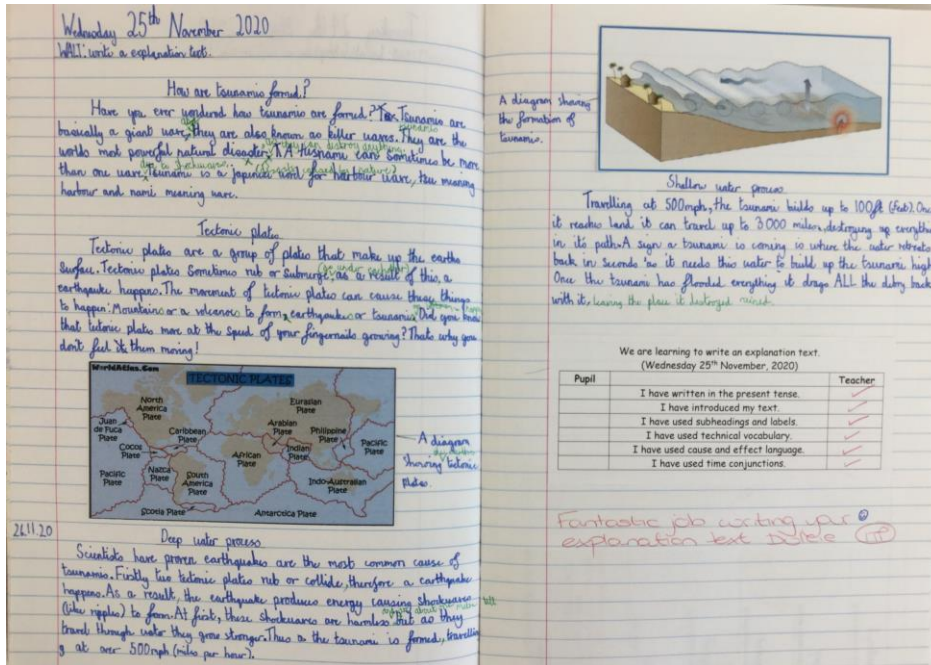 Wednesday 25th November 2020
WALT: write a explanation text.
How are tsunamis formed?
Have you ever wondered how tsunamis are formed? Tsunamis are
basically a giant wave, they are also known as killer waves. They are the
worlds most powerful natural disaster. A tusnami can sometimes be more
than one wave. Tsunami is a japenise word for harbour wave, tsu meaning
harbour and nami meaning wave.
Tectonic plates
Tectonic plates are a group of plates that make up the earths
surface. Tectonic plates sometimes rub or submerge, as a result of this, a
earthquake happens. The movement of tectonic plates can cause these things
to happen: Mountains or a volcanoes to form, earthquakes or tsunamis. Did you know
that tectonic plates move at the speed of your fingernails growing? Thats why you
don't feel them moving!
WorldAtlas.Com
TECTONIC PLATES
North America Plate
Eurasian Plate
Juan de Fuca Plate
Caribbean Plate
Arabian Plate
Philippine Plate
Cocos Plate
Indian Plate
Pacific Plate
African Plate
Pacific Plate
Nazca Plate
South America Plate
Indo-Australian Plate
Scotia Plate
Antarctica Plate
A diagram
showing tectonic
plates.
26.11.20
Deep water process
Scientists have proven earthquakes are the most common cause of
tsunamis. Firstly two tectonic plates rub or collide, therefore a earthquake
happens. As a result, the earthquake produces energy causing shockwaves
(like ripples) to form. At first, these shockwaves are harmless but as they
travel through water they grow stronger. Thus a the tsunami is formed, travelling
g at over 500mph (miles per hour).
A diagram showing
the formation of
tsunamis.
Shallow water process
Travelling at 500mph, the tsunami builds up to 100ft (feet). Once
it reaches land it can travel up to 3000 miles, destroying up everything
in its path. A sign a tsunami is coming is where the water retreats
back in seconds as it needs this water to build up the tsunami high
Once the tsunami has flooded everything it drags ALL the debry back
with it, leaving the place it destroyed ruined.
We are learning to write an explanation text.
(Wednesday 25th November, 2020)
Pupil Teacher
I have written in the present tense.
I have introduced my text.
I have used subheadings and labels.
I have used technical vocabulary.
I have used cause and effect language.
I have used time conjunctions.
Fantastic job writing your
explanation text